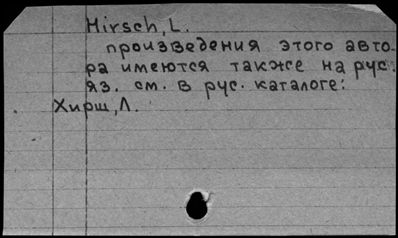 Hirsch, L.
произведения этого авто-
ра имеются также на рус.
яз. см. в рус. каталоге:
Хирш, Л.